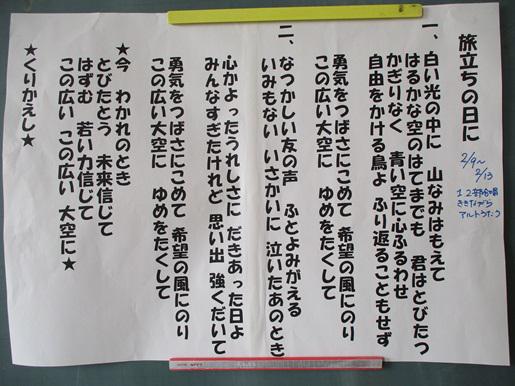 旅立ちの日に
2/9〜
2/13
1.2部合唱
ききながら
アルトうたう
一、白い光の中に 山なみはもえて
はるかな空のはてまでも 君はとびたつ
かぎりなく 青い空に心ふるわせ
自由をかける鳥よ ふり返ることもせず
勇気をつばさにこめて 希望の風にのり
この広い大空に ゆめをたくして
二、なつかしい友の声 ふとよみがえる
いみもない いさかいに 泣いたあのとき
心かよったうれしさに だきあった日よ
みんなすぎたけれど 思い出 強くだいて
勇気をつばさにこめて 希望の風にのり
この広い大空に ゆめをたくして
★今 わかれのとき
とびたとう 未来信じて
はずむ 若い力信じて
この広い この広い 大空に★
★くりかえし★